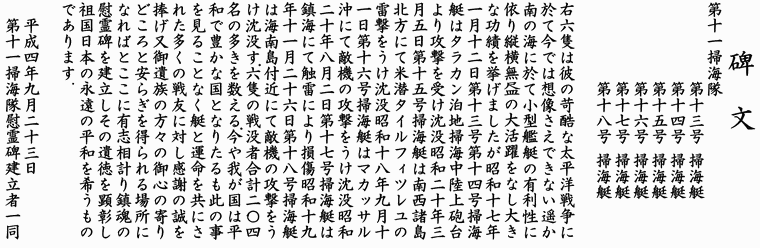 碑文
第十一掃海隊
第十三号 掃海艇
第十四号 掃海艇
第十五号 掃海艇
第十六号 掃海艇
第十七号 掃海艇
第十八号 掃海艇
右六隻は彼の苛酷な太平洋戦争に
於て今では想像さえできない遥か
南の海に於て小型艦艇の有利性に
依り縦横無尽の大活躍をなし大き
な功績を挙げましたが昭和十七年
一月十二日第十三号第十四号掃海
艇はタラカン泊地掃海中陸上砲台
より攻撃を受け沈没昭和二十年三
月五日第十五号掃海艇は南西諸島
北方にて米潜タイルフィツレユの
雷撃をうけ沈没昭和十八年九月十
一日第十六号掃海艇はマカッサル
沖にて敵機の攻撃をうけ沈没昭和
二十年八月二日第十七号掃海艇は
鎮海にて触雷により損傷昭和十九
年十一月二十六日第十八号掃海艇
は海南島付近にて敵機の攻撃をう
け沈没す.六隻の戦没者合計二〇四
名の多きを数える.今や我が国は平
和で豊かな国となりたるも此の事
を見ることなく艇と運命を共にさ
れた多くの戦友に対し感謝の誠を
捧げ又御遺族の方々の御心の寄り
どころと安らぎを得られる場所に
なればとここに有志相計り鎮魂の
慰霊碑を建立しその遺徳を顕彰し
祖国日本の永遠の平和を希うもの
であります.
平成四年九月二十三日
第十一掃海隊慰霊碑建立者一同